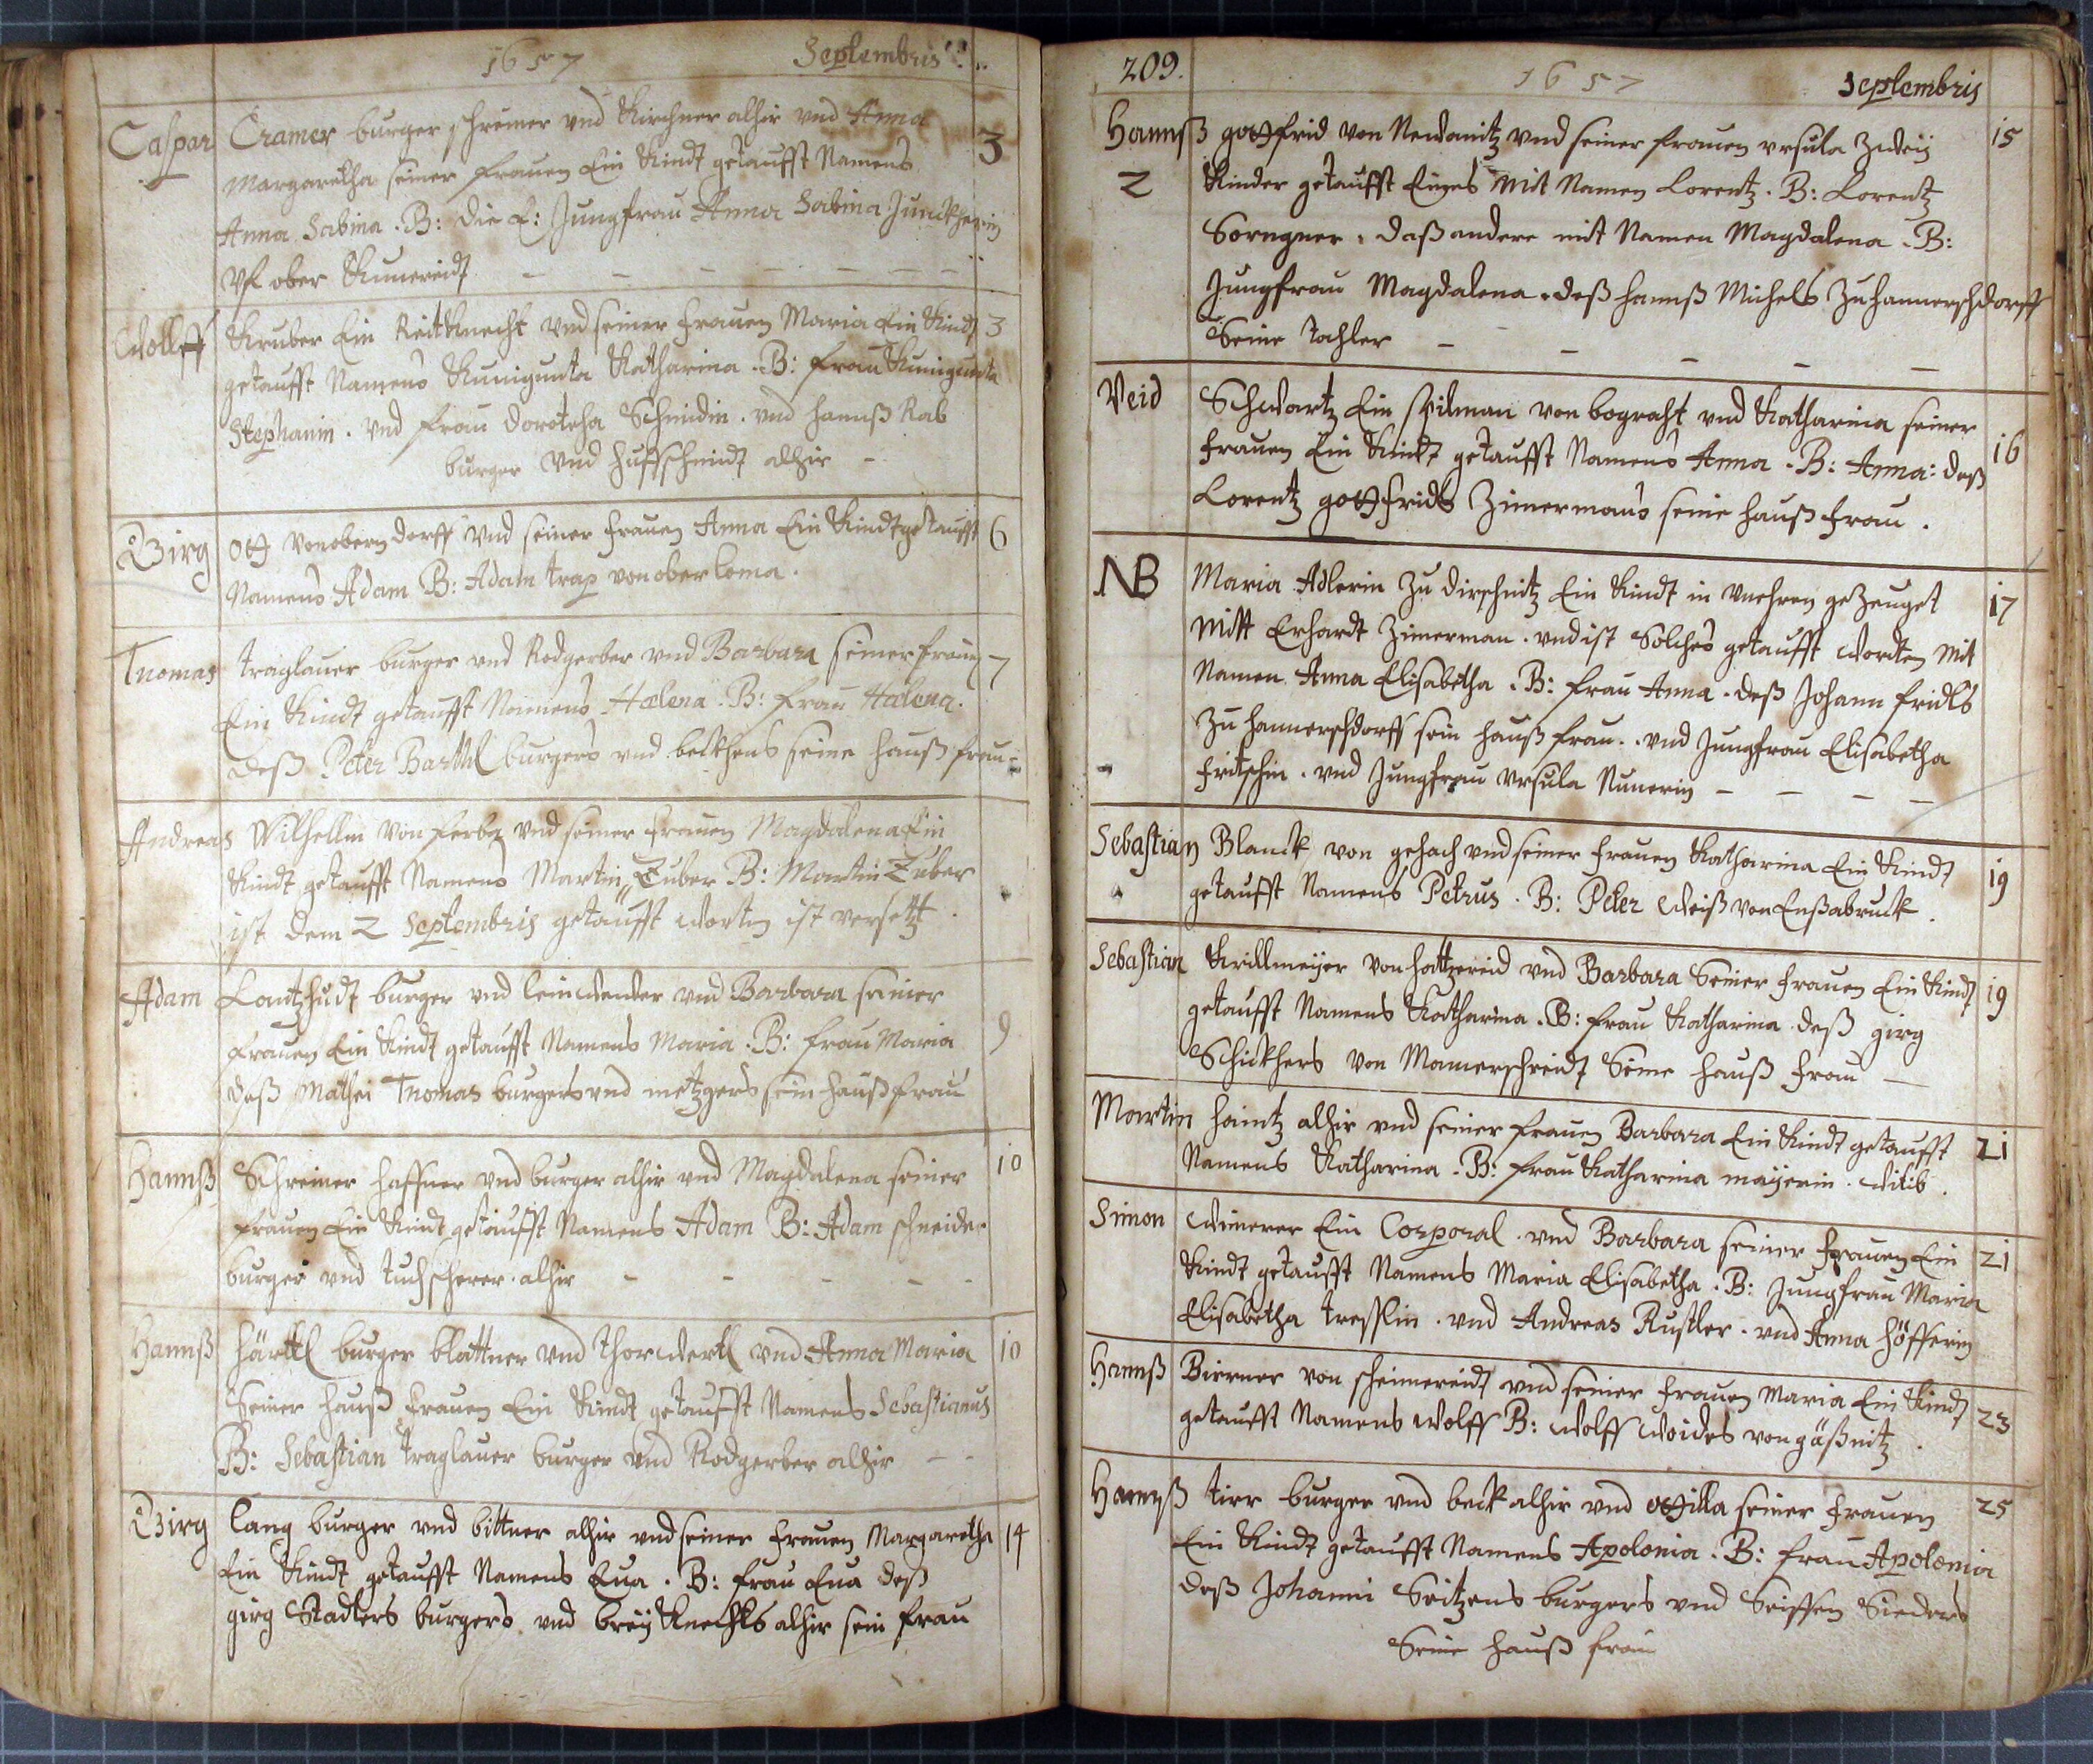 1657 Septembris
Caspar Cramer burger schreiner vnd Kirchner alhir vnd Anna 3
Margaretha seiner frauen Ein Kindt getaufft Namens
Anna Sabina . B: die E: Jungfrau Anna Sabina Junckherin
Vf ober
Wolff Kruber Ein Reitknecht vnd seiner frauen Maria Ein Kindt 3
getaufft Namens Kunigunta Katharina . B: frau Kunigunta
Stephanin . vnd frau Dorotheha Schmidin . vnd Hannß Rab
burger vnd Huffschmidt alhir -
Girg Ott von obern dorff vnd seiner frauen Anna Ein Kindt getaufft 6
Namens Adam B: Adam trap von ober
Thomas traglauer burger vnd Rodgerber vnd Barbara seiner frauen 7
Ein Kindt getaufft Namens Hælena . B: frau Hælena .
deß Peter Barthl burgers vnd beckhens seine hauß frau -
Andreas Wilhellm von vnd seiner frauen Magdalena Ein
Kindt getaufft Namens Martin Zuber B: Martin Zuber
ist dem 2 Septembris getaufft worten ist versetzt .
Adam Lantzhudt burger vnd leinweber vnd Barbara seiner
frauen Ein Kindt getaufft Namens Maria . B: frau Maria 9
deß Mathei Thomas burgers vnd metzgers sein hauß frau
Hannß Schreiner haffner vnd burger alhir vnd Magdalena seiner 10
frauen Ein Kindt getaufft Namens Adam B: Adam schneider
burger vnd tuchscherer . alhir - - - - -
Hannß Härttl burger blattner vnd thorwertl vnd Anna Maria 10
Seiner hauß frauen Ein Kindt getaufft Namens Sebastianus
B: Sebastian traglauer burger vnd Rodgerber alhir - -
Girg Lang burger vnd bittner alhir vnd seiner frauen Margaretha 14
Ein Kindt getaufft Namens Eua . B: frau Eua deß
girg Stadlers burgers vnd breÿ Knechts alhir sein frau
209. 1657 Septembris
Hannß gottfrid von vnd seiner frauen vrsula Zweÿ 15
2 Kinder getaufft Eines mit Namen Lorentz . B: Lorentz
Sorngner . daß andere mit Namen Magdalena . B:
Jungfrau Magdalena . deß Hannß Michels Zu hannerschdorff
Seine tochter - - - - -
Veid Schwartz Ein spilman von vnd Katharina seiner
frauen Ein Kindt getaufft Namens Anna . B: Anna : deß 16
Lorentz gottfrids Zimermans seine hauß frau .
NB Maria Adlerin Zu dirschnitz Ein Kindt in vnehren geZeuget 17
mitt Erhardt Zimerman . vnd ist Solches getaufft worten mit
Namen Anna Elisabetha . B: frau Anna . deß Johann fridls
Zu hannerschdorff sein hauß frau . . vnd Jungfrau Elisabetha
fritschin . vnd Jungfrau vrsula Nunerin - - - -
Sebastian Blanck von gehach vnd seiner frauen Katharina Ein Kindt 19
getaufft Namens Petrus . B: Peter Weiß von Enßabruck .
Sebastian Krillmeÿer von Hattzereid vnd Barbara Seiner frauen Ein Kindt 19
getaufft Namens Katharina . B: frau Katharina deß girg
Schickhers von Mamerschreidt Seine hauß frau -
Martin Haintz alhir vnd seiner frauen Barbara Ein Kindt getaufft 21
Namens Katharina . B: frau Katharina maÿerin . witib .
Simon Wimerer Ein Corporal . vnd Barbara seiner frauen Ein 21
Kindt getaufft Namens Maria Elisabetha . B: Jungfrau Maria
Elisabetha tresslin . vnd Andreas Rustler . vnd Anna Höfferin
Hannß Birner von scheimereidt vnd seiner frauen Maria Ein Kindt 23
getaufft Namens Wolff B: Wolff Woides von gäßnitz .
Hannß tirr burger vnd beck alhir vnd Ottilla seiner frauen 25
Ein Kindt getaufft Namens Apolonia . B: frau Apolonia
deß Johanni Seitzens burgers vnd Seiffen Sieders
Seine hauß frau